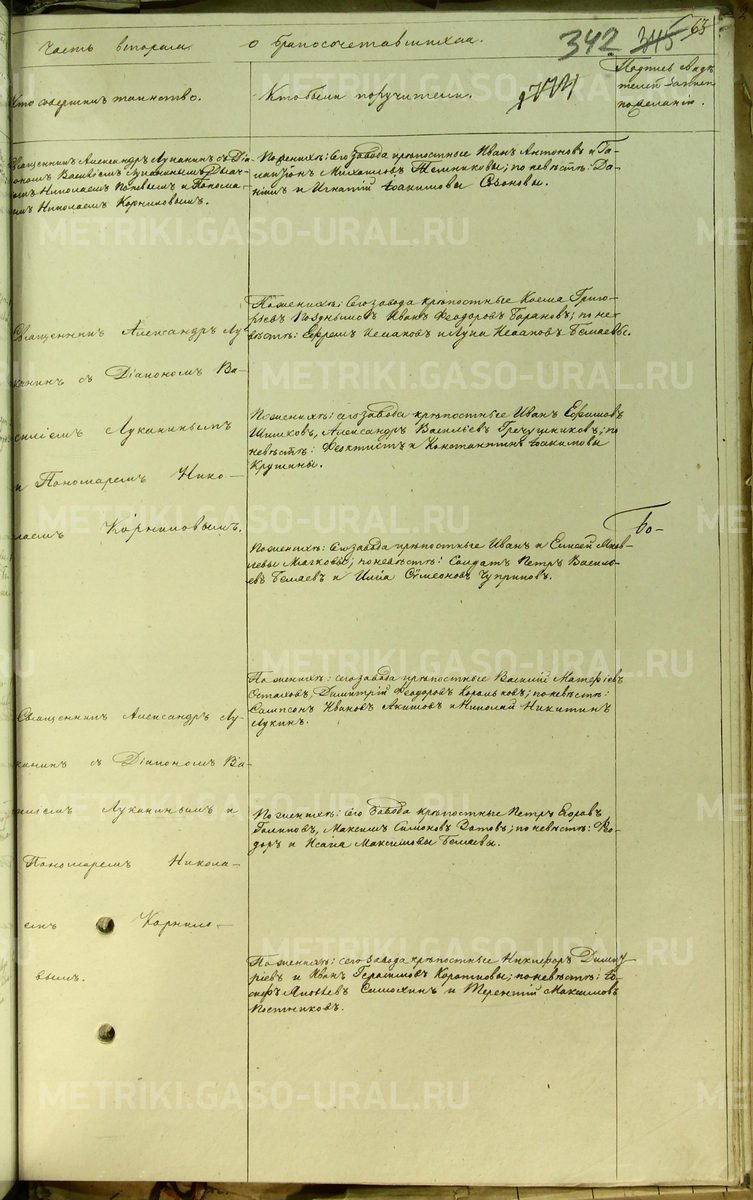 Часть вторая о бракосочетавшихся. 342 345 63
Кто совершил таинство.
Кто были поручители.
Подпись свидѣ
телей записи
по желанію.
Священникъ Александръ Луканинъ съ Діа
кономъ Василіемъ Луканинымъ Дьяч-
комъ Николаемъ Поповымъ и Понома-
ремъ Николаемъ Корниловымъ.
По женихѣ: сего завода крѣпостные Иванъ Антоновъ и Га-
Михаиловъ Темниковы; по невѣстѣ: Да-
ніилъ и Игнатій Іоакимовы Созоновы.
По женихѣ: Сего завода крѣпостные Косма Григо-
рьевъ Иванъ Ѳеодоровъ Барановъ; по не-
вѣстѣ: Ефремъ Исааковъ и Лука Исааковъ Беляевы.
Священникъ Александръ Лу-
канинъ съ Діакономъ Ва-
силіемъ Луканинымъ
и Пономаремъ Нико-
лаемъ Корниловымъ.
По женихѣ: сего завода крѣпостные Иванъ Ефимовъ
Шишковъ, Александръ Васильевъ Гречушниковъ; по
невѣстѣ: Ѳеоктистъ и Константинъ Іоакимовы
Крушины.
По женихѣ: Сего завода крѣпостные Иванъ и Елисей Яков-
левы Мягковы; по невѣстѣ: Солдатъ Петръ Василь-
евъ Беляевъ и Илія Сѵмеоновъ Чуприновъ.
Бо-
По женихѣ: сего завода крѣпостные Василій Матѳіевъ
Димитрій Ѳеодоровъ Корольковъ; по невѣстѣ:
Сампсонъ Ивановъ Акишовъ и Николай Никитинъ
Лукинъ.
Священникъ Александръ Лу-
канинъ съ Діакономъ Ва-
силіемъ Луканинымъ и
Пономаремъ Никола-
емъ Корнило-
вымъ.
По женихѣ: сего завода крѣпостные Петръ Егоровъ
Галиповъ, Максимъ Симоновъ Зотовъ; по невѣстѣ: Ѳео-
доръ и Исаія Максимовы Беляевы.
По женихѣ: сего завода крѣпостные Никифоръ Димит
ріевъ и Иванъ Герасимовъ Коротковы; по невѣстѣ: Іо-
сифъ Яковлевъ Симохинъ и Терентій Максимовъ
Постниковъ.
METRIKI.GASO-URAL.RU